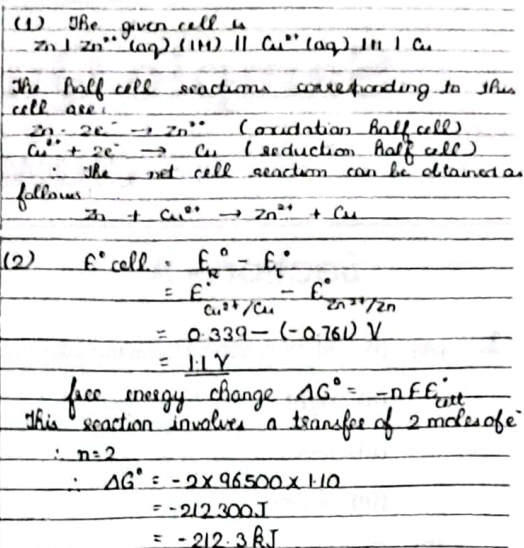 (1) The given cell is
Zn | Zn²⁺ (aq) (1M) || Cu²⁺ (aq) 1M | Cu
The half cell reactions corresponding to this
cell are:
Zn - 2e⁻ → Zn²⁺ (oxidation half cell)
Cu²⁺ + 2e⁻ → Cu (reduction half cell)
∴ The net cell reaction can be obtained as
follows
Zn + Cu²⁺ → Zn²⁺ + Cu
(2) E° cell = E°R - E°L
= E°Cu²⁺/Cu - E°Zn²⁺/Zn
= 0.339 - (-0.761) V
= 1.1 V
free energy change ΔG° = -nFE°cell
This reaction involves a transfer of 2 moles of e⁻
∴ n=2
∴ ΔG° = -2 x 96500 x 1.10
= -212300J
= -212.3 kJ